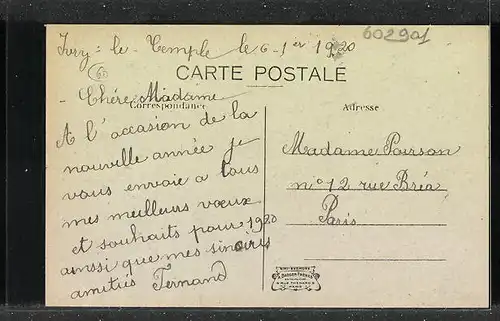 Ivry-le-Temple le 6-1er 1920
602901
60
CARTE POSTALE
Correspondance
Adresse
Chère Madame
A l'occasion de la
nouvelle année je
vous envoie a tous
mes meilleurs vœux
et souhaits pour 1920
aussi que mes sincères
amitiés Fernand
Madame Poirson
n° 12 rue Bréa
Paris